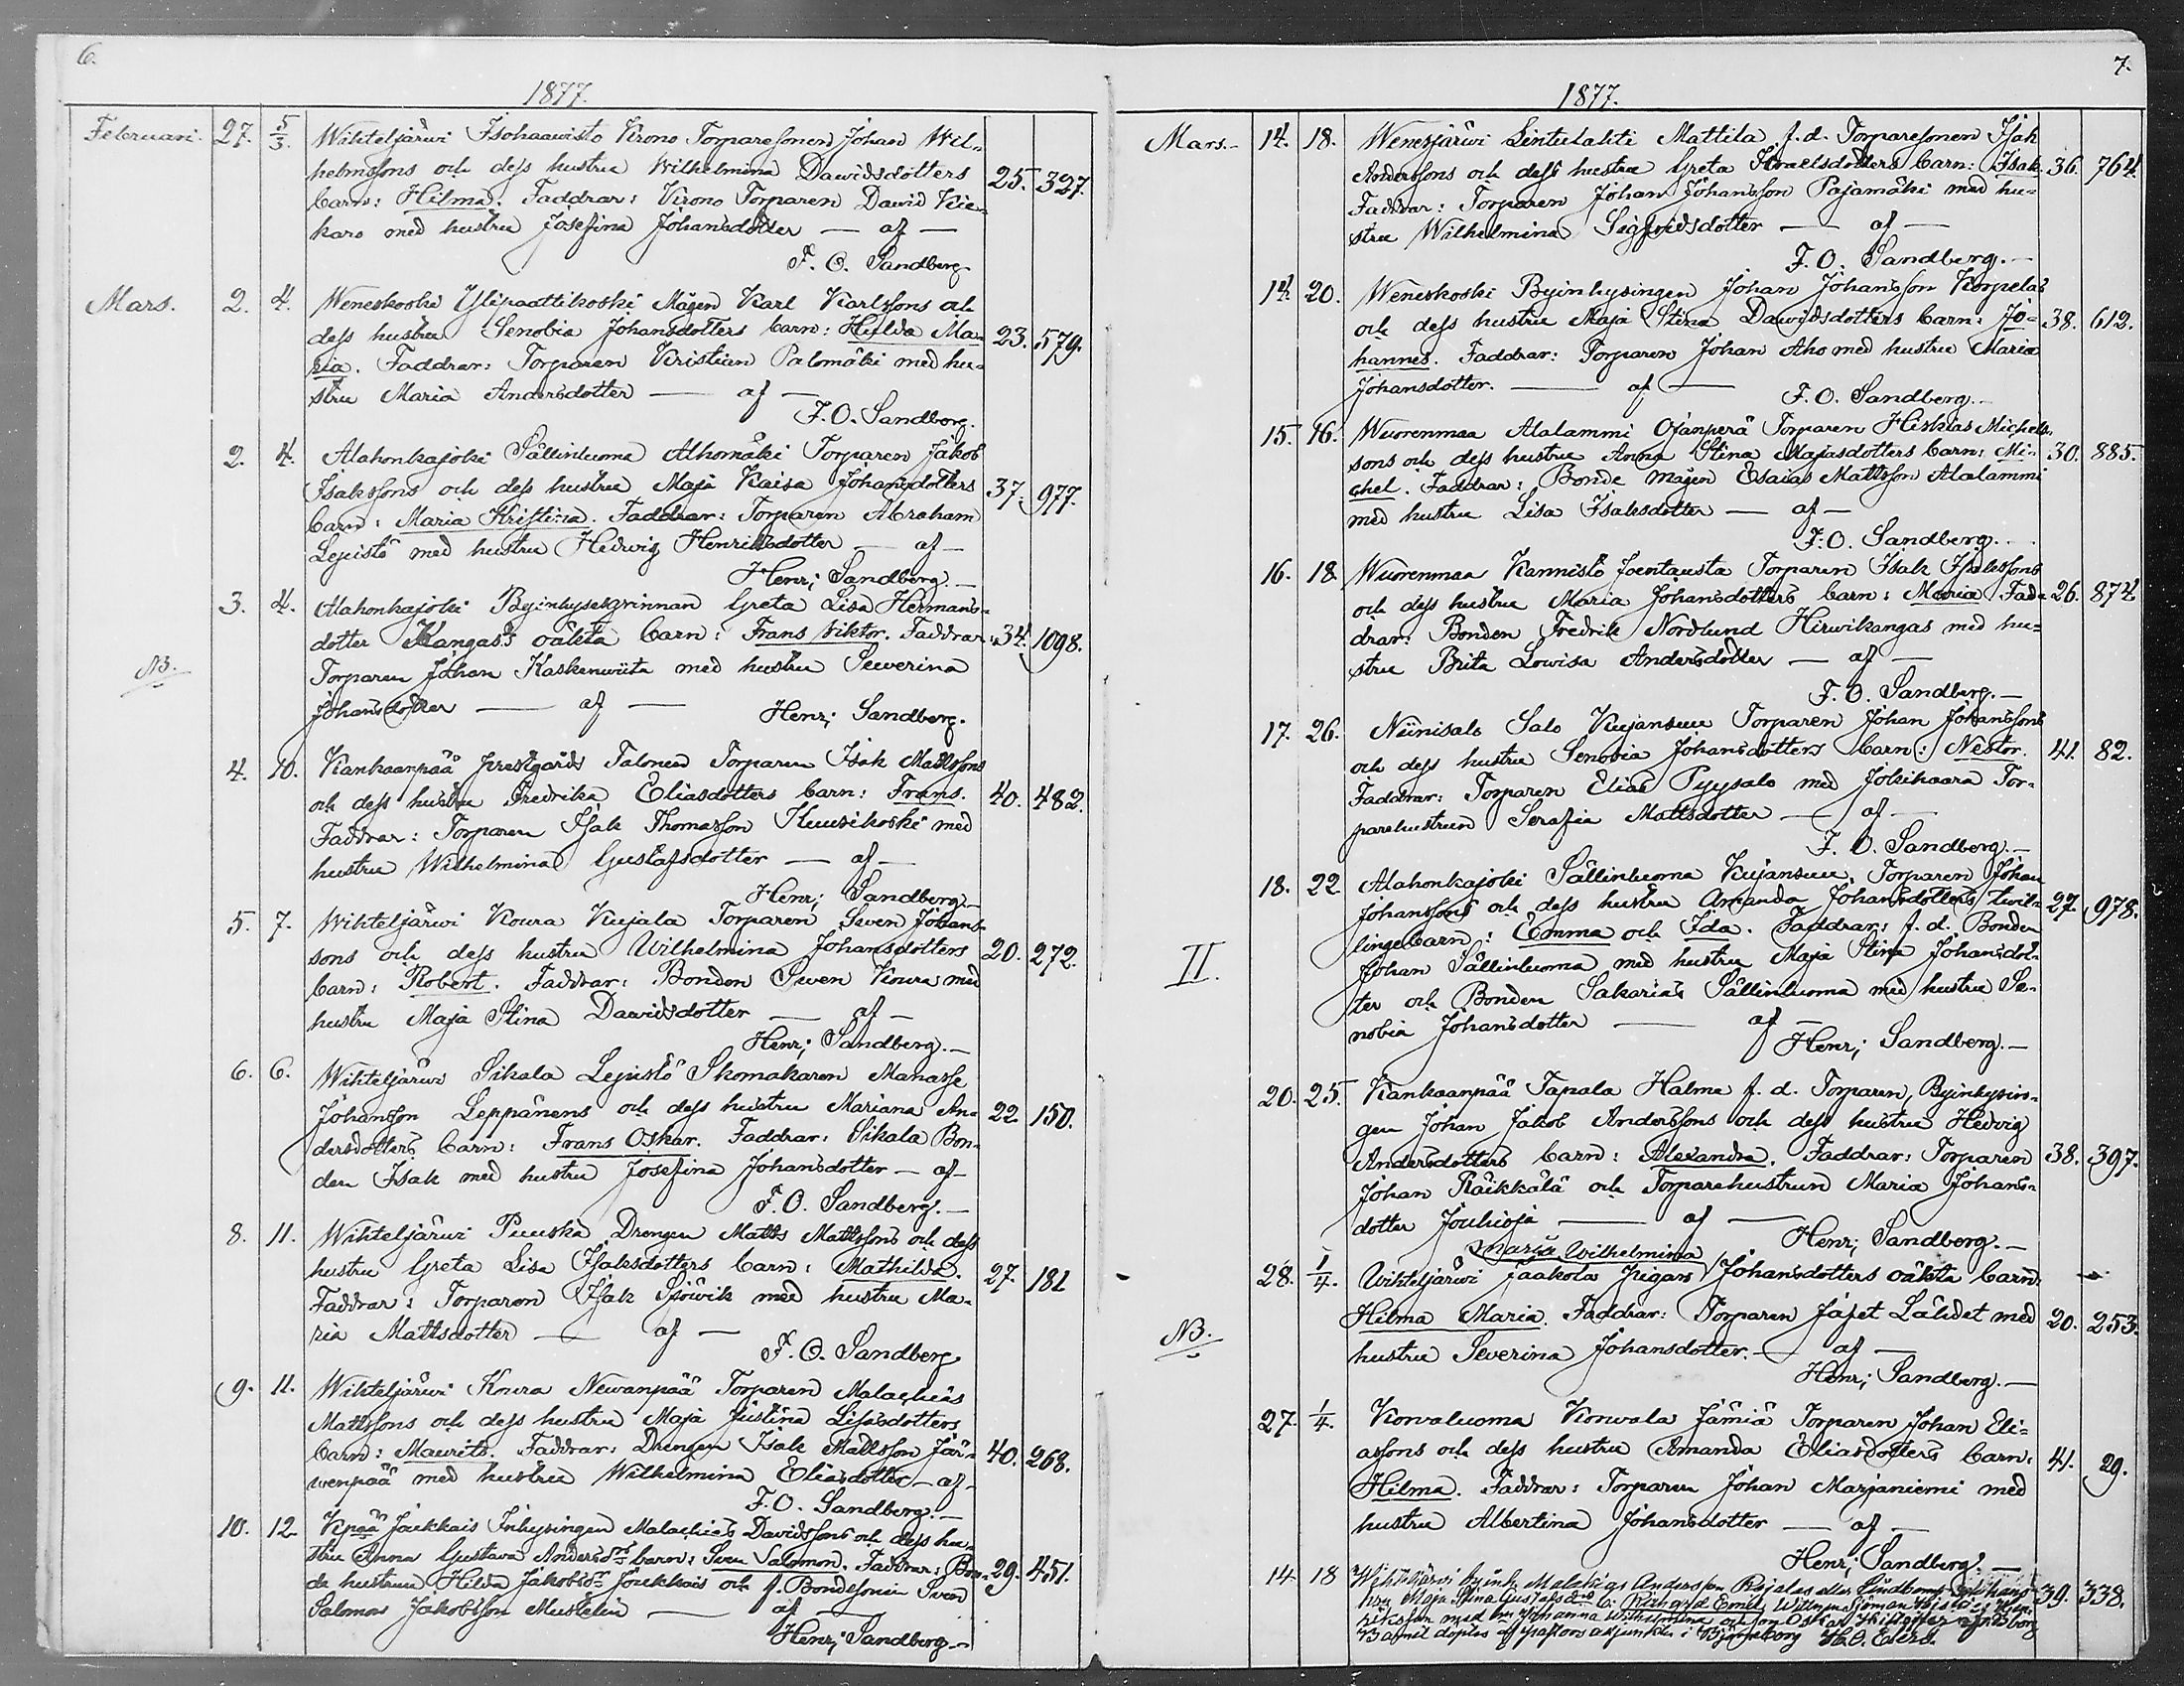 6.
1877.
Februari. 27. 5/3. Wihteljärwi Isohaawisto Krono Torparesonen Johan Wil-
helmssons och dess hustru Wilhelmina Dawidsdotters 25. 327.
barn: Hilma. Faddrar: Krono Torparen David Kie-
karo med hustru Josefina Johansdotter — af —
F. O. Sandberg.
Mars. 2. 4. Weneskoski Ylipaattikoski Mågen Karl Karlssons och
dess hustru Senobia Johansdotters barn: Hulda Ma- 23. 579.
ria. Faddrar: Torparen Kristian Palomäki med hu-
stru Maria Andersdotter — af —
F. O. Sandberg.
2. 4. Alahonkajoki Sällinluoma Alhomäki Torparen Jakob
Isakssons och dess hustru Maja Kaisa Johansdotters 37. 977.
barn: Maria Kristina. Faddrar: Torparen Abraham
Lepistö med hustru Hedwig Henriksdotter — af —
Henr; Sandberg. —
3. 4. Alahonkajoki Byinhyseqvinnan Greta Lisa Hermans-
dotter Kangas's oäkta barn: Frans Viktor. Faddrar: 34. 1098.
NB. Torparen Johan Kaskenwiita med hustru Sewerina
Johansdotter — af — Henr; Sandberg.
4. 10. Kankaanpää prestgårds Talonen Torparen Isak Mattssons
och dess hustru Fredrika Eliasdotters barn: Frans. 40. 482.
Faddrar: Torparen Isak Thomasson Kuusikoski med
hustru Wilhelmina Gustafsdotter — af —
Henr; Sandberg. —
5. 7. Wihteljärwi Koura Kujala Torparen Swen Johans-
sons och dess hustru Wilhelmina Johansdotters 20. 272.
barn: Robert. Faddrar: Bonden Swen Koura med
hustru Maja Stina Davidsdotter — af —
Henr; Sandberg. —
6. 6. Wihteljärwi Sikala Lepistö Skomakaren Manasse
Johansson Leppänens och dess hustru Mariana An- 22. 150.
dersdotters barn: Frans Oskar. Faddrar: Sikala Bon-
den Isak med hustru Josefina Johansdotter — af —
F. O. Sandberg. —
8. 11. Wihteljärwi Puuska Drengen Matts Mattssons och dess
hustru Greta Lisa Isaksdotters barn: Mathilda. 27. 181
Faddrar: Torparen Isak Sjöwik med hustru Ma-
ria Mattsdotter — af —
F. O. Sandberg
9. 11. Wihteljärwi Koura Newanpää Torparen Malachias
Mattssons och dess hustru Maja Justina Lisasdotters
barn: Maurits. Faddrar: Drengen Isak Mattsson Jär- 40. 268.
wenpää med hustru Wilhelmina Eliasdotter — af —
F. O. Sandberg. —
10. 12 Kpää Jaukkais Inhysingen Malachias Davidssons och dess hu-
stru Anna Gustava Andersdrs barn: Sven Salomon. Faddrar: Bon- 29. 451.
de hustrun Hilda Jakobsdr Joukkais och f. Bondesonen Sven
Salomon Jakobsson Mustelin — af —
Henr; Sandberg. —
7.
1877.
Mars. 14. 18. Wenesjärwi Lintulahti Mattila f. d. Torparesonen Isak
Anderssons och dess hustru Greta Israelsdotters barn: Isak. 36. 764.
Faddrar: Torparen Johan Johansson Pajamäki med hu-
stru Wilhelmina Sigfridsdotter — af —
F. O. Sandberg. —
14. 20. Weneskoski Byinhysingen Johan Johansson Korpelas
och dess hustru Maja Stina Dawidsdotters barn: Jo- 38. 612.
hannes. Faddrar: Torparen Johan Aho med hustru Maria
Johansdotter. — af —
F. O. Sandberg. —
15. 16. Wuorenmaa Alalammi Ojanperä Torparen Hiskias Michels-
sons och dess hustru Anna Stina Majasdotters barn: Mi- 30. 885.
chel. Faddrar: Bonde mågen Esaias Mattsson Alalammi
med hustru Lisa Isaksdotter — af —
F. O. Sandberg. —
16. 18. Wuorenmaa Kannisto Joentausta Torparen Isak Isakssons
och dess hustru Maria Johansdotters barn: Maria Fad- 26. 874
drar: Bonden Fredrik Nordlund Hirwikangas med hu-
stru Brita Lowisa Andersdotter — af —
F. O. Sandberg. —
17. 26. Niinisalo Salo Kujansuu Torparen Johan Johanssons
och dess hustru Senobia Johansdotters barn: Nestor. 41. 82.
Faddrar: Torparen Elias Pyysalo med Jokihaara Tor-
parehustrun Serafia Mattsdotter — af —
F. O. Sandberg. —
18. 22. Alahonkajoki Sällinluoma Kujansuu, Torparen Johan
Johanssons och dess hustru Amanda Johansdotters twil- 27. 978.
lingebarn: Emma och Ida. Faddrar: f. d. Bonden
II. Johan Sällinluoma med hustru Maja Stina Johansdot-
ter och Bonden Sakarias Sällinluoma med hustru Se-
nobia Johansdotter — af —
Henr; Sandberg. —
20. 25. Kankaanpää Tapala Halme f. d. Torparen, Byinhysin-
gen Johan Jakob Anderssons och dess hustru Hedvig
Andersdotters barn: Alexandra. Faddrar: Torparen 38. 397.
Johan Räikkälä och Torparehustrun Maria Johans-
dotter Jouhioja — af —
Henr; Sandberg. —
Maria Wilhelmina
28. 1/4. Wihteljärwi Jaakola pigans Johansdotters oäkta barn:
Hilma Maria. Faddrar: Torparen Jafet Lähdet med 20. 253.
NB. hustru Severina Johansdotter. — af —
Henr; Sandberg. —
27. 1/4. Korvaluoma Konvala Jämiä Torparen Johan Eli-
assons och dess hustru Amanda Eliasdotters barn: 41. 29.
Hilma. Faddrar: Torparen Johan Marjaniemi med
hustru Albertina Johansdotter — af —
Henr; Sandberg. —
14. 18 Wihteljärvi Malakias Andersson Rajalas eller Lindbergs 39. 338.
hru Maja Stina Gustafsdrs b: Emil,
med hru Johanna Wilhelmina
Barnet döptes af pastors adjunkten i Björneborg